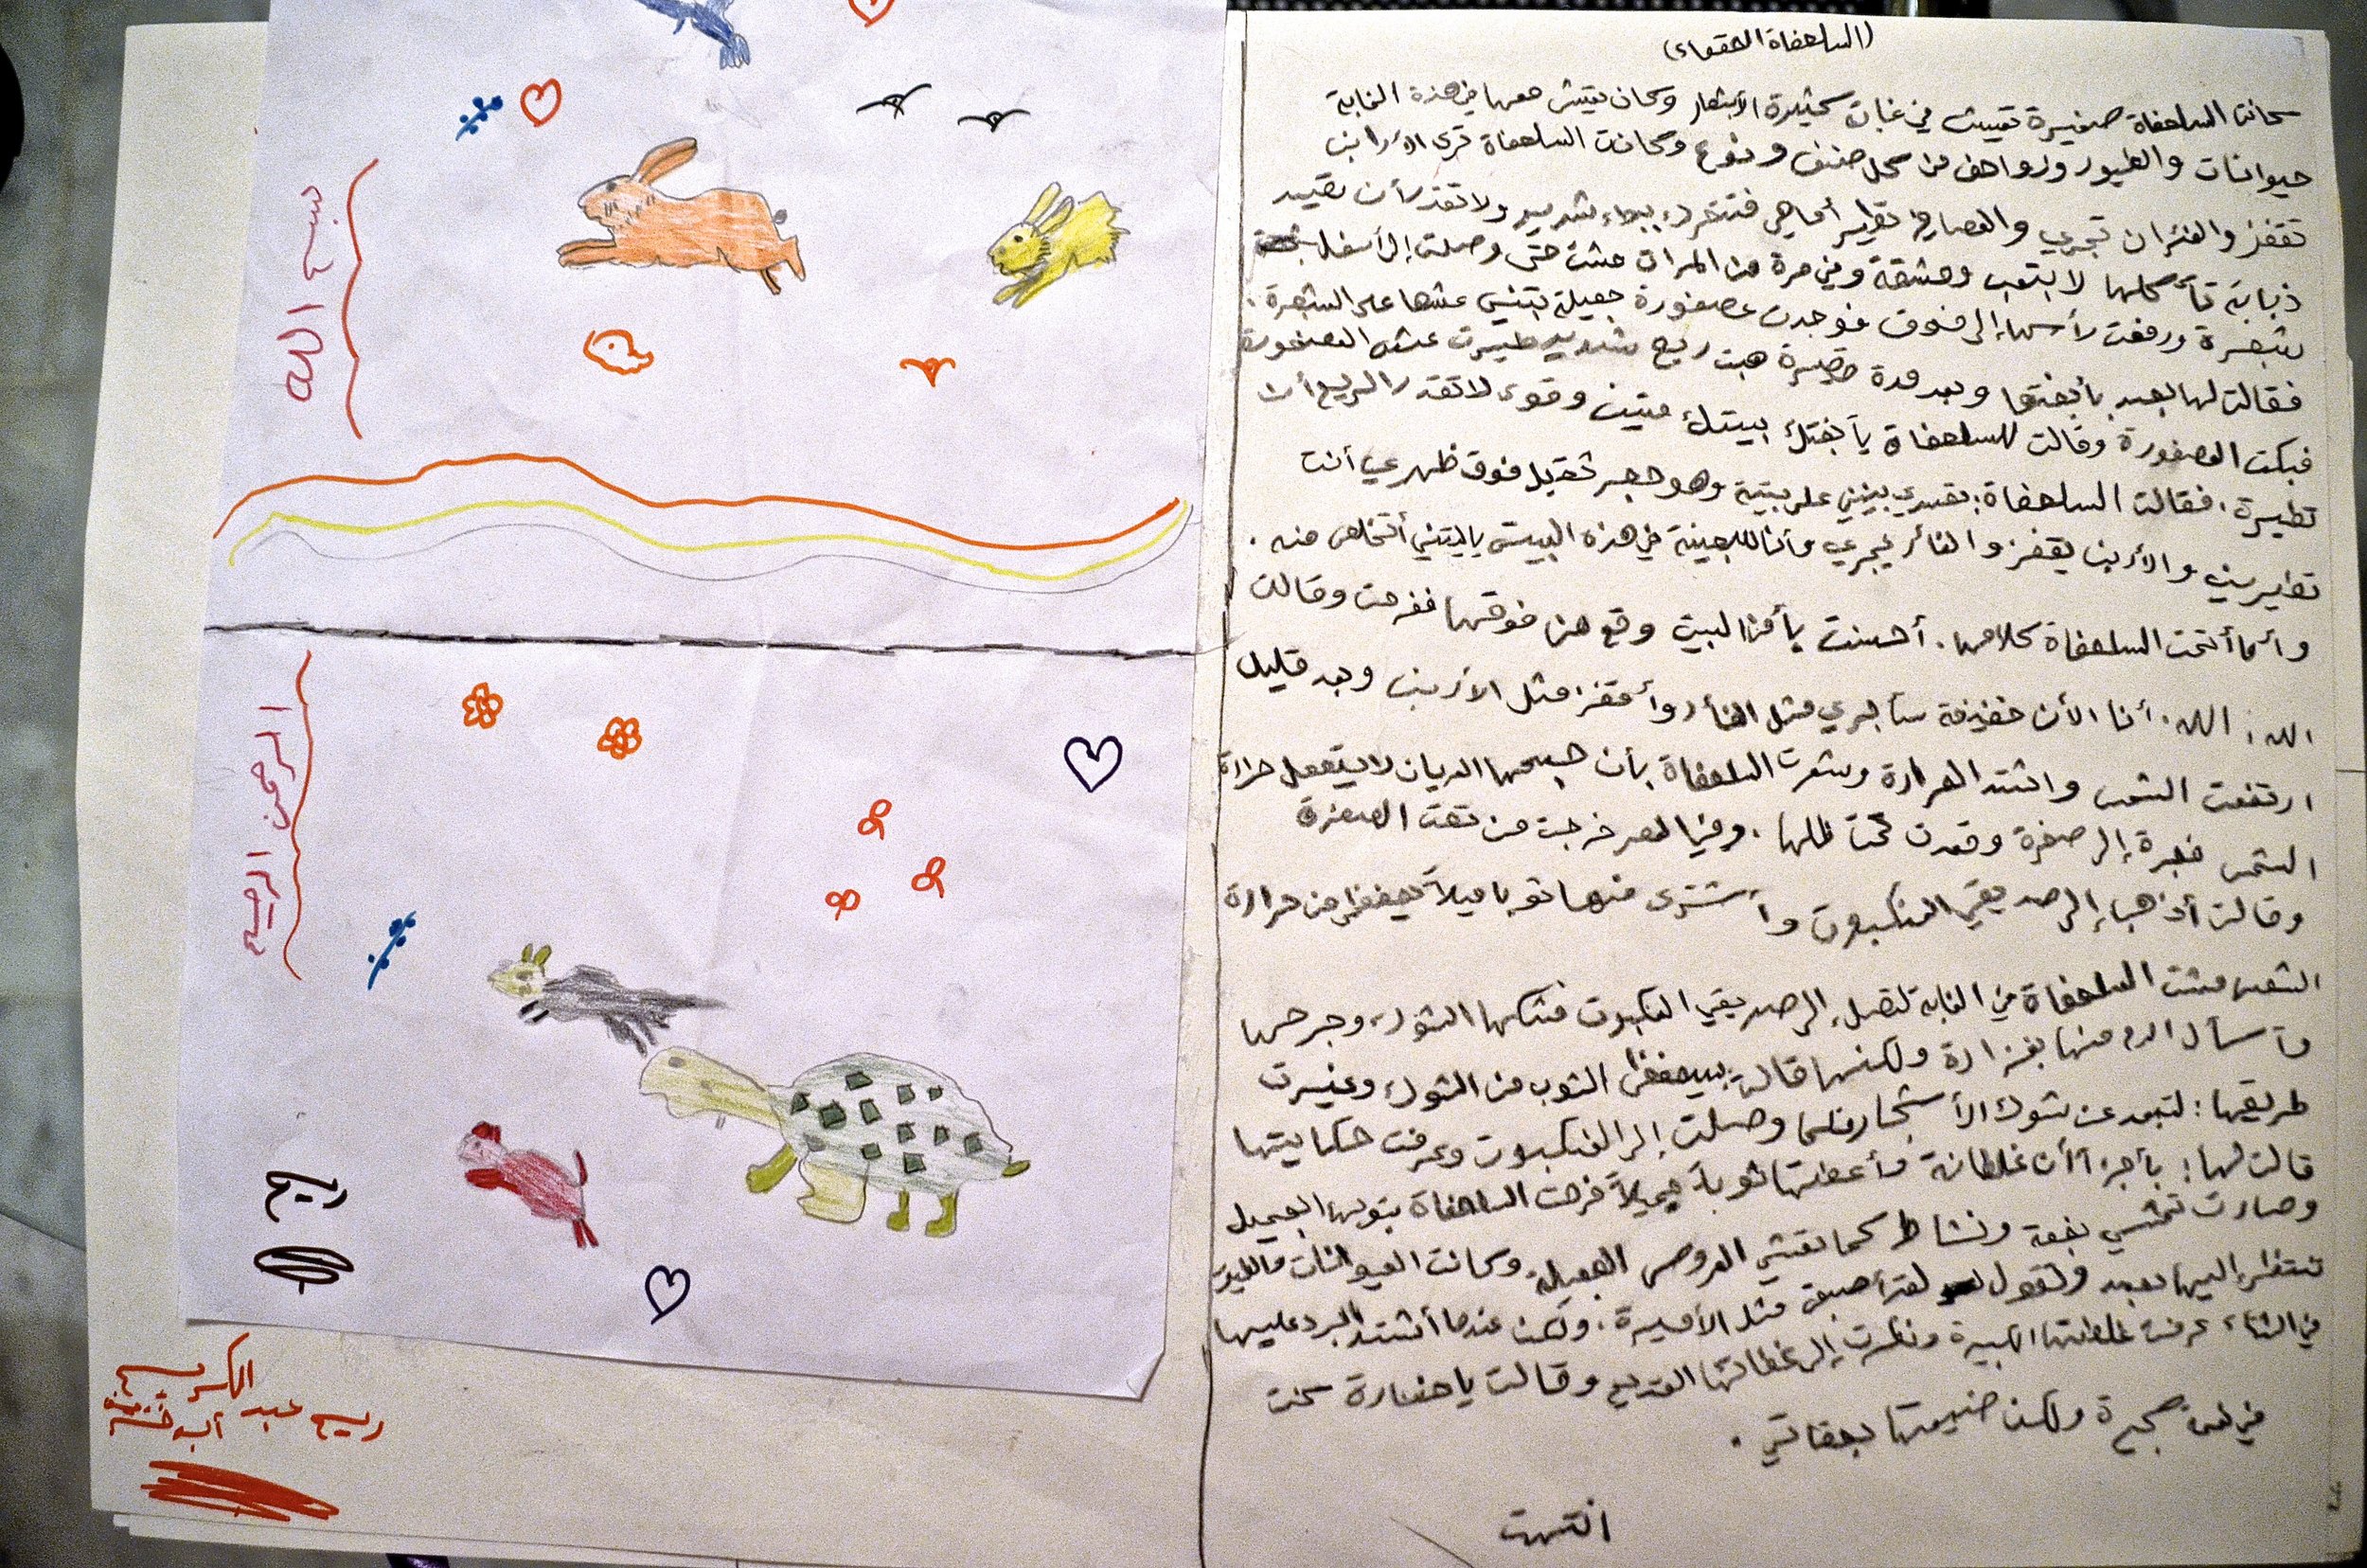 (السلحفاة الحمقاء)
كانت السلحفاة صغيرة تعيش في غابات كثيرة الأشجار وكان يعيش معها في هذة الغابة
حيوانات والطيور وزواحف من كل صنف ونوع وكانت السلحفاة ترى الأرانب
تقفز والفئران تجري والعصافير تطير أما هي فتتحرك ببطء شديد ولا تقدر أن تصيد
ذبابة تأكلها لا بتعب ومشقة وفي مرة من المرات مشت حتى وصلت إلى أسفل
شجرة ورفعت رأسها إلى فوق فوجدت عصفورة جميلة تبني عشها على الشجرة.
فقالت لها بعيد يا أختها وبعد مدة قصيرة هبت ريح شديد طيرت عش العصفورة
فبكت العصفورة وقالت للسلحفاة يا أختك بيتك متين وقوى لا تقدر الريح أن
تطيرة. فقالت السلحفاة: بيتي وهو حجر ثقيل فوق ظهري أنت
تطيرين والأرنب يقفز والفأر يجري وأنا في هذه البيت ياليتني أتخلص منه.
السلحفاة كلامها. أحسنت بأن البيت وقع من فوقها ففرحت وقالت
الله، الله، أنا الأن خفيفة سأجري مثل الفأر وأقفز مثل الأرنب وبعد قليل
ارتفعت الشمس واشتد الحرارة وشعرت السلحفاة بأن جسمها العريان لا يتحمل حرارة
الشمس إلى صخرة وقعدت تحت ظلها. وفي العصر خرجت من تحت الصخرة
وقالت أذهب إلى صديقي العنكبوت وأشترى منها ثوبا جميلاً يحفظني من حرارة
الشمس مشت السلحفاة في الغابة لتصل إلى صديقي العنكبوت فشكها الشوك وجرحها
وسأل الدم منها بغزارة ولكنها قالت سيحفظني الثوب من الشوك وغيرت
طريقها: لتبعد عن شوك الأشجار فلما وصلت إلى العنكبوت وعرفت حكايتها
قالت لها: غلطانة وأعطتها ثوباً جميلاً فرحت السلحفاة بثوبها الجميل
وصارت تمشي بخفة ونشاط كما تمشي العروس الجميلة وكانت الحيوانات والطيور
تنظر إليها بعجب وتقول لقد أصبحت مثل الأميرة. ولكن عندما أشتد البرد عليها
في الشتاء عرفت غلطتها الكبيرة ونظرت إلى غطائها القديم وقالت يا خسارة كنت
في ولكن ضيعتها بحماقتي.
انتهت
بسم الله
الرحمن الرحيم
ريم
ريم عبد الكريم